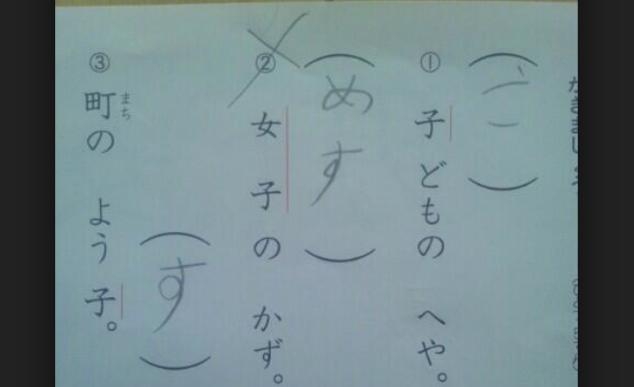 （こ）
① 子どもの へや。
（めす）
② 女子の かず。
（す）
まち
③ 町の よう子。